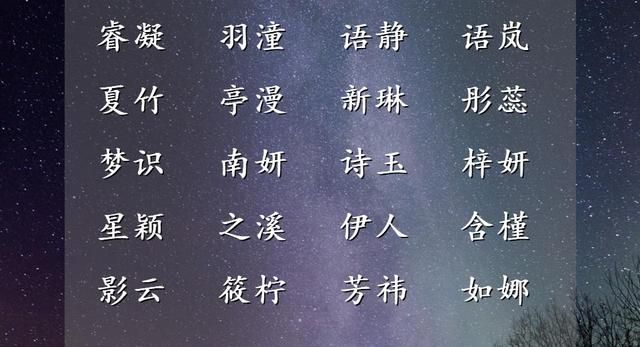 睿凝 羽潼 语静 语岚
夏竹 亭漫 新琳 彤蕊
梦识 南妍 诗玉 梓妍
星颖 之溪 伊人 含槿
影云 筱柠 芳祎 如娜